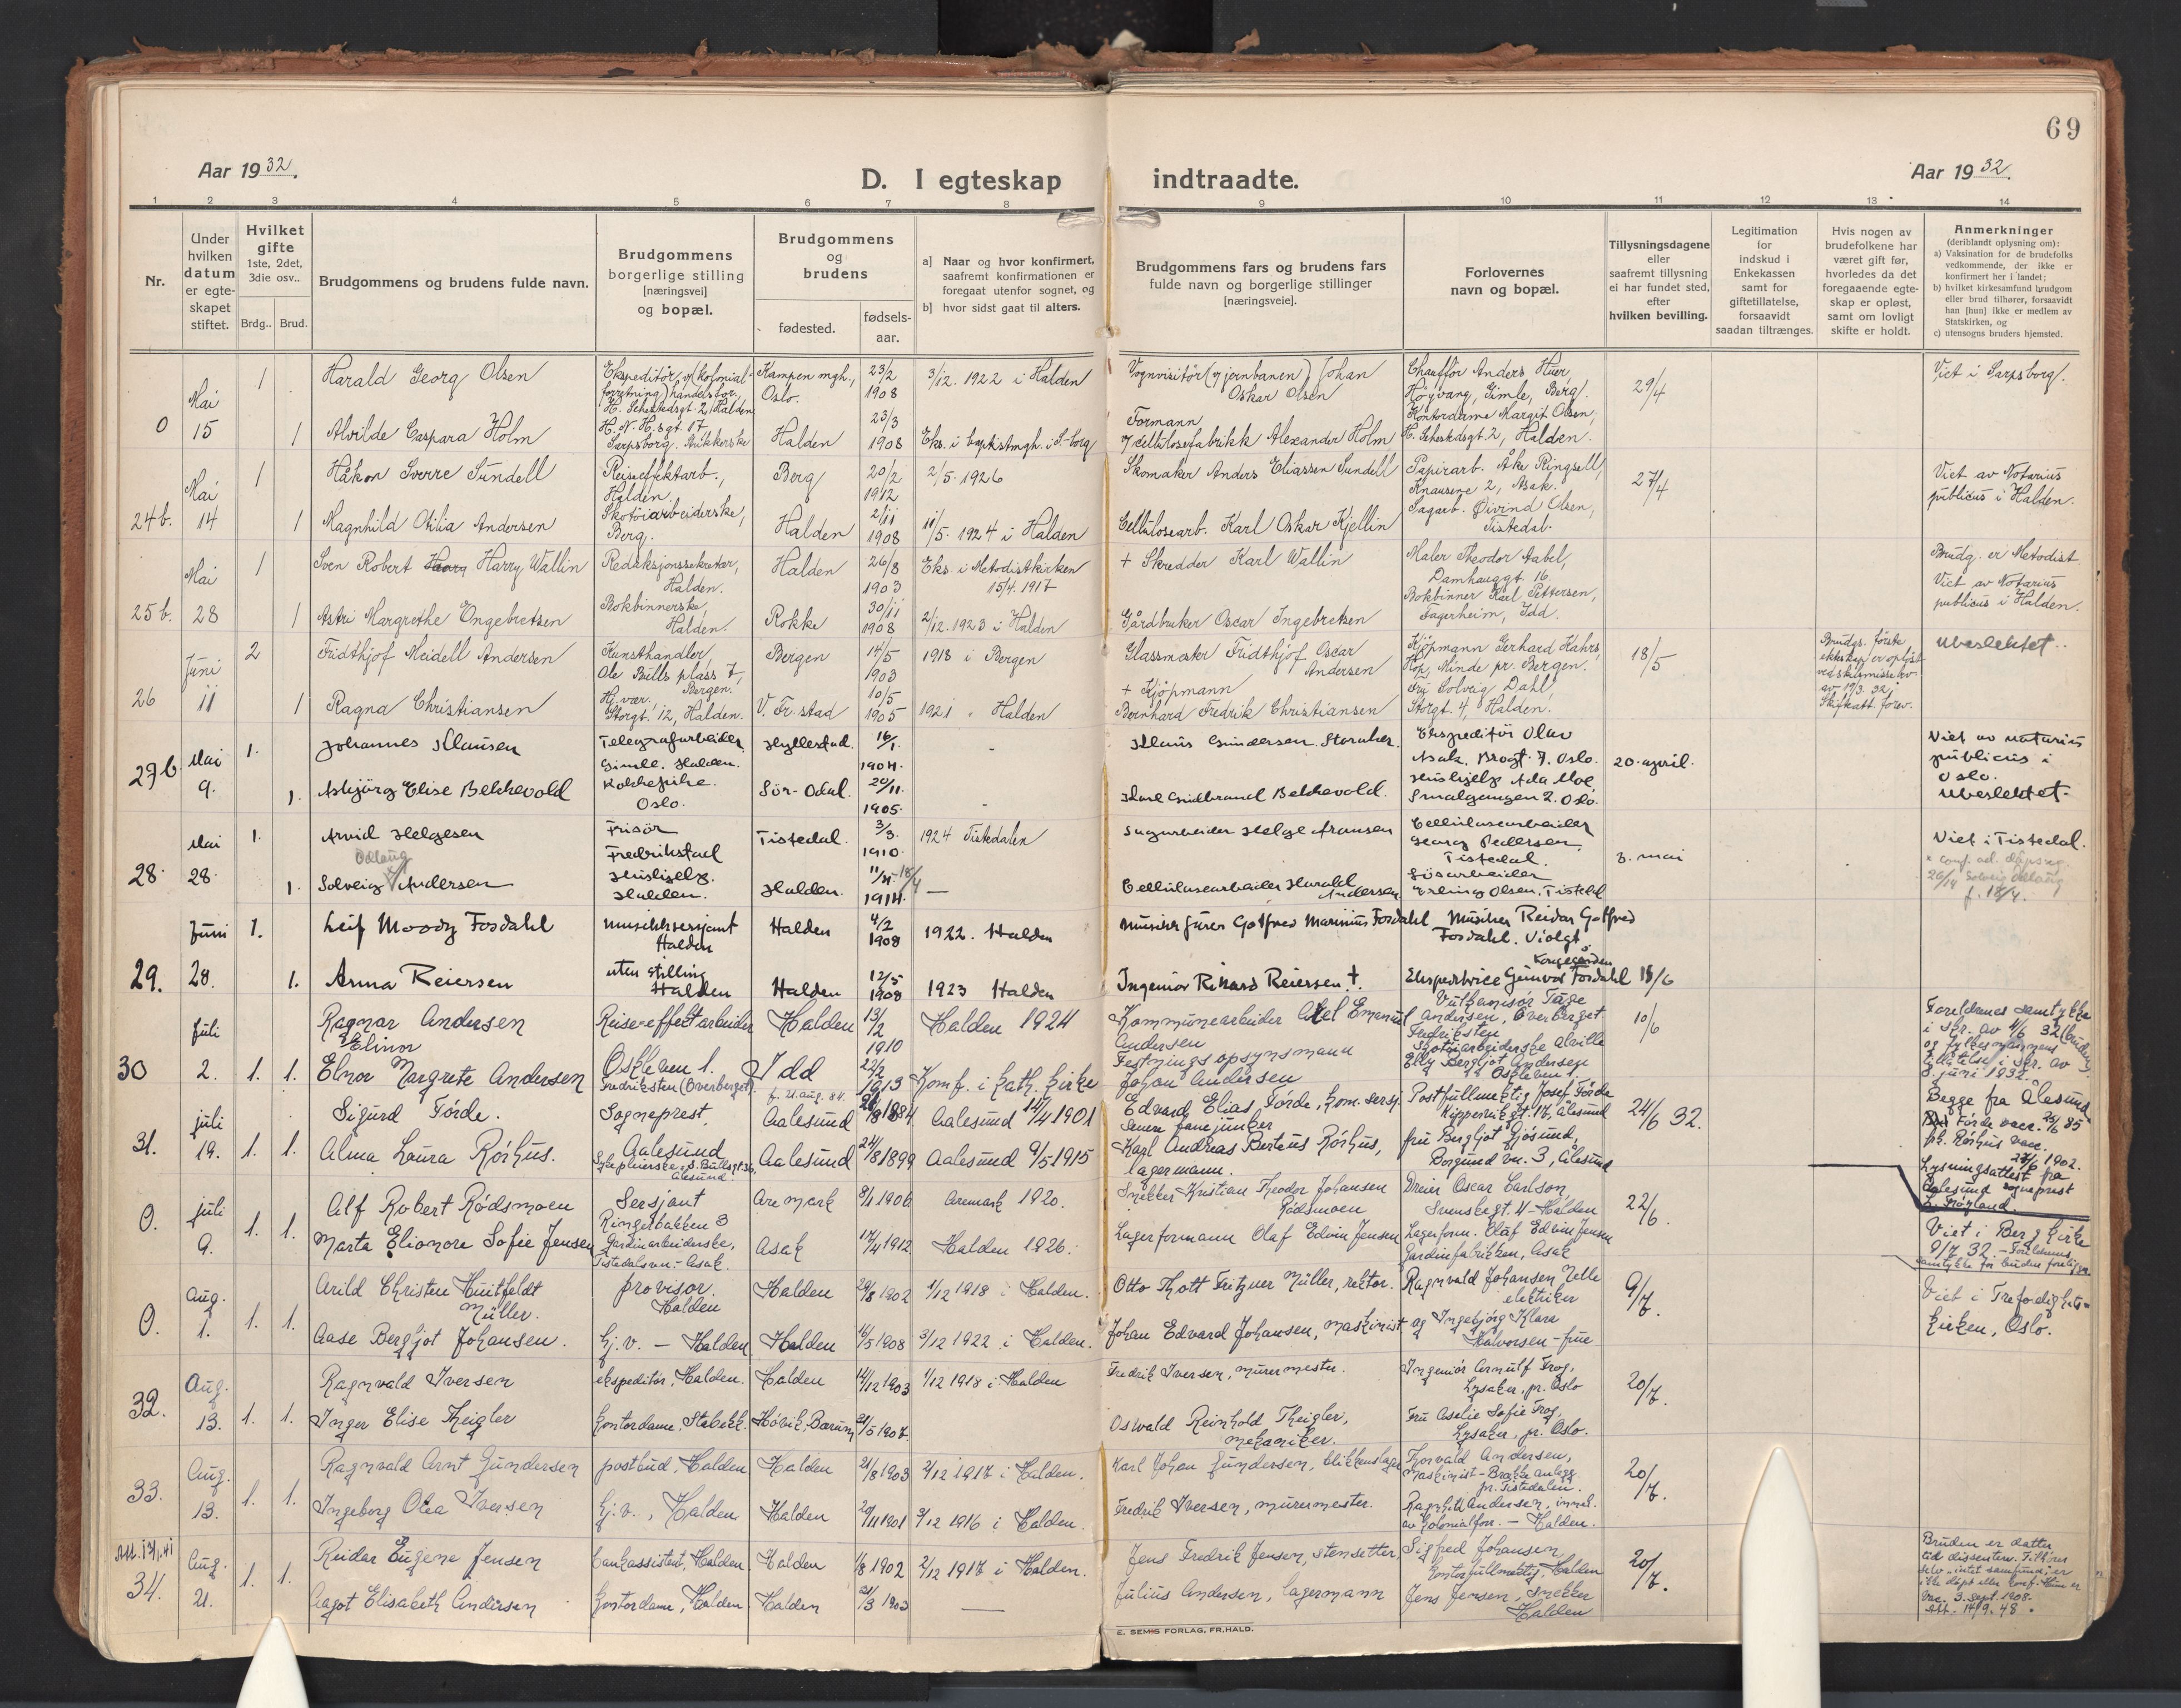 69
Aar 1932.
D. I egteskap indtraadte.
Aar 1932.
1 2 3 4 5 6 7 8 9 10 11 12 13 14
Nr.
Under hvilken datum er egte-skapet stiftet.
Hvilket gifte 1ste, 2det, 3die osv..
Brdg.. Brud.
Brudgommens og brudens fulde navn.
Brudgommens borgerlige stilling [næringsvei] og bopæl.
Brudgommens og brudens
fødested.
fødsels-aar.
a] Naar og hvor konfirmert, saafremt konfirmationen er foregaat utenfor sognet, og
b] hvor sidst gaat til alters.
Brudgommens fars og brudens fars fulde navn og borgerlige stillinger [næringsveie].
Forlovernes navn og bopæl.
Tillysningsdagene eller saafremt tillysning ei har fundet sted, efter hvilken bevilling.
Legitimation for indskud i Enkekassen samt for giftetillatelse, forsaavidt saadan tiltrænges.
Hvis nogen av brudefolkene har været gift før, hvorledes da det foregaaende egte-skap er opløst, samt om lovligt skifte er holdt.
Anmerkninger
(deriblandt oplysning om):
a) Vaksination for de brudefolks vedkommende, der ikke er konfirmert her i landet;
b) hvilket kirkesamfund brudgom eller brud tilhører, forsaavidt han [hun] ikke er medlem av Statskirken, og
c) utensogns bruders hjemsted.
Mai 1 Harald Georg Olsen
Kampen mgh., Oslo. 23/2 1908 3/12. 1922 i Halden
Vognvisitør (v jernbanen) Johan Oskar Olsen
Chauffør Anders Huer, Høyvang, Gimle, Berg.
29/4
Viet i Sarpsborg.
0 15 1 Alvilde Caspara Holm
Halden 23/3 1908 Eks. i baptistmgh. i S-borg
Formann v cellulosefabrikk Alexander Holm
Kontordame Margit Olsen, H. Sehestedsgt. 2, Halden.
Mai 1 Håkon Sverre Sundell
Reiseeffektarb., Halden. Berg 20/2 1912 2/5. 1926
Skomaker Anders Eliassen Sundell
Papirarb. Åke Ringsell, Knausene 2, Asak.
27/4
Viet av Notarius publicus i Halden.
24b. 14 1 Magnhild Otilia Andersen
Skotøiarbeiderske, Berg. Halden 2/11 1908 11/5. 1924 i Halden
Cellulosearb. Karl Oskar Kjellin
Sagarb. Øivind Olsen, Tistedal.
Mai 1 Sven Robert Harry Wallin
Redaksjonssekretær, Halden. Halden 26/8 1903 Eks. i Metodistkirken 15/4. 1917
+ Skredder Karl Wallin
Maler Theodor Aabel, Damhauggt. 16.
Brudg. er Metodist. Viet av Notarius publicus i Halden.
25b. 28 1 Astri Margrethe Engebretsen
Bokbinnerske, Halden. Rokke 30/11 1908 2/12. 1923 i Halden
Gårdbruker Oscar Ingebretsen
Bokbinner Karl Pettersen, Fagerheim, Idd.
Juni 2 Fridthjof Meidell Andersen
Kunsthandler, Ole Bulls plass 7, Bergen. Bergen 14/5 1903 1918 i Bergen
Glassmester Fridthjof Oscar Andersen
Kjøpmann Gerhard Hahrs, Hop, Minde pr. Bergen.
18/5
Brudgs. første
ubeslektet..
26 11 1 Ragna Christiansen
Hj. vær., Storgt. 12, Halden. V. Fr.stad 10/5 1905 1921 " Halden
+ Kjøpmann Bernhard Fredrik Christiansen
Frk Solveig Dahl, Storgt. 4, Halden.
Mai 1. Johannes Klausen
Telegrafarbeider Gimle. Halden. Hyllestad. 16/1. 1904. -
Ekspeditør Olav Asak. Brogt. 7. Oslo.
20. april.
Viet av notarius publicus i Oslo. Ubeslektet.
27b 9. 1. Asbjörg Elise Bekkevold
Kokkepike. Oslo. Sör-Odal. 29/11. 1905. -
Karl Gudbrand Bekkevold.
Hushjelp Ada Moe, Smalgangen 2. Oslo.
Mai 1. Arvid Helgesen
Frisör Fredrikstad Tistedal. 3/3. 1910. 1924 Tistedalen
Sagarbeider Helge Aronsen
Cellulosearbeider Georg Pedersen, Tistedal.
3. mai
Viet i Tistedal.
28. 28. 1. Solveig Odlaug Andersen
Hushjelp. Halden. Halden. 1914. —
Cellulosearbeider Harald Andersen
Erling Olsen. Tistedal
Juni 1. Leif Moody Fosdahl
Musikksersjant Halden Halden 4/2 1908 1922. Halden
Gotfred Marinius Fosdahl
Musiker Reidar Gotfred Fosdahl. Violgt.
29. 28. 1. Anna Reiersen
uten stilling Halden Halden 12/5 1908 1923 Halden
Ingeniør Rikard Reiersen. †.
Ekspeditrice Gunvor Fosdahl Kongegården
18/6
Juli Ragnar Andersen
Reiseeffektarbeider Halden 13/2 1910 Halden 1924
Kommunearbeider Axel Emanuel Andersen
Vulkanisør Tage Andersen, Överberget Fredriksten
10/6
30 2. 1. 1. Elnor Margrete Andersen
Elinor
Oskleven 1. Fredriksten (Overberget). Idd 1913 Komf. i kath. kirke
Festningsopsynsmann Johan Andersen
Skotøiarbeiderske Alvilde Elly Bergljot Andersen Oskleven 1.
juli Sigurd Førde.
Sogneprest, Aalesund f. 21. aug. 84. Aalesund 1884 Aalesund 14/4 1901
Edvard Elias Førde, kom. sersj. senere fanejunker
Postfullmektig Josef Førde Kipperviksgt. 17, Ålesund
24/6 32.
Begge fra Ålesund
31. 19. 1. 1. Alma Laura Rørhus.
Aalesund 24/8 1899 Aalesund 9/5 1915
Karl Andreas Berteus Rørhus, lagermann.
fru Bergljot Gjøsund, Borgund vn. 3, Ålesund
Lysningsattest fra Aalesund sogneprest
juli Alf Robert Rødsmoen
Sersjant Ringerbakken 3 Aremark 8/1 1906 Aremark 1920.
Snekker Kristian Theodor Johansen Rødsmoen
Dreier Oscar Carlson Svensksgt. 4 - Halden
22/6.
Viet i Berg kirke 9/7 32.
0. 9. 1. 1. Marta Elionore Sofie Jensen
Gardinarbeiderske, Tistedalsvn.- Asak. Asak 17/4 1912 Halden 1926.
Lagerformann Olaf Edvin Jensen
Lagerform. Olaf Edvin Jensen Gardinfabrikken, Asak
Aug. Arild Christen Huitfeldt Müller.
provisor. Halden Halden 29/8 1902 1/12 1918 i Halden.
Otto Thott Fritzner Müller, rektor.
Ragnvald Johansen Melle elektriker
9/7.
Viet i Trefoldighets-kirken, Oslo.
0. 1. 1. 1. Aase Bergljot Johansen.
hj. v. — Halden Halden 16/5 1908 3/12 1922 i Halden.
Johan Edvard Johansen, maskinist
og Ingebjørg Klara Halvorsen - frue
Aug. Ragnvald Iversen
ekspeditør, Halden. Halden 14/12 1903 1/12 1918 i Halden
Fredrik Iversen, murermester.
Ingeniør Arnulf Frog, Lysaker, pr. Oslo
20/7.
32. 13. 1. 1. Inger Elise Theigler
kontordame, Stabekk. Høvik, Bærum 21/5 1907.
Oswald Reinhold Theigler, mekaniker.
Fru Aselie Sofie Frog, Lysaker, pr. Oslo.
Aug. Ragnvald Arnt Gundersen
postbud, Halden Halden 21/8 1903 2/12 1917 i Halden.
Karl Johan Gundersen, blikkenslager
Thorvald Andersen, maskinist - Brekke anlegg pr. Tistedalen.
20/7.
33. 13. 1. 1. Ingeborg Olea Iversen
hj. v., Halden Halden 20/11 1901 3/12 1916 i Halden.
Fredrik Iversen, murermester.
Ragnhild Andersen, inneh. av kolonialforr. — Halden.
Aug. Reidar Eugene Jensen
bankassistent, Halden Halden 1/8 1902 2/12 1917 i Halden.
Jens Fredrik Jensen, stensetter,
Sigfred Johansen, kontorfullmektig, Halden
20/7.
Bruden er datter
34. 21. 1. 1. Aagot Elisabeth Andersen
kontordame, Halden Halden 21/3 1903 —
Julius Andersen, lagermann
Jens Jensen, snekker Halden
3. sept. 1908.
Att. 14/9. 48.
E. SEMS FORLAG, FR.HALD.